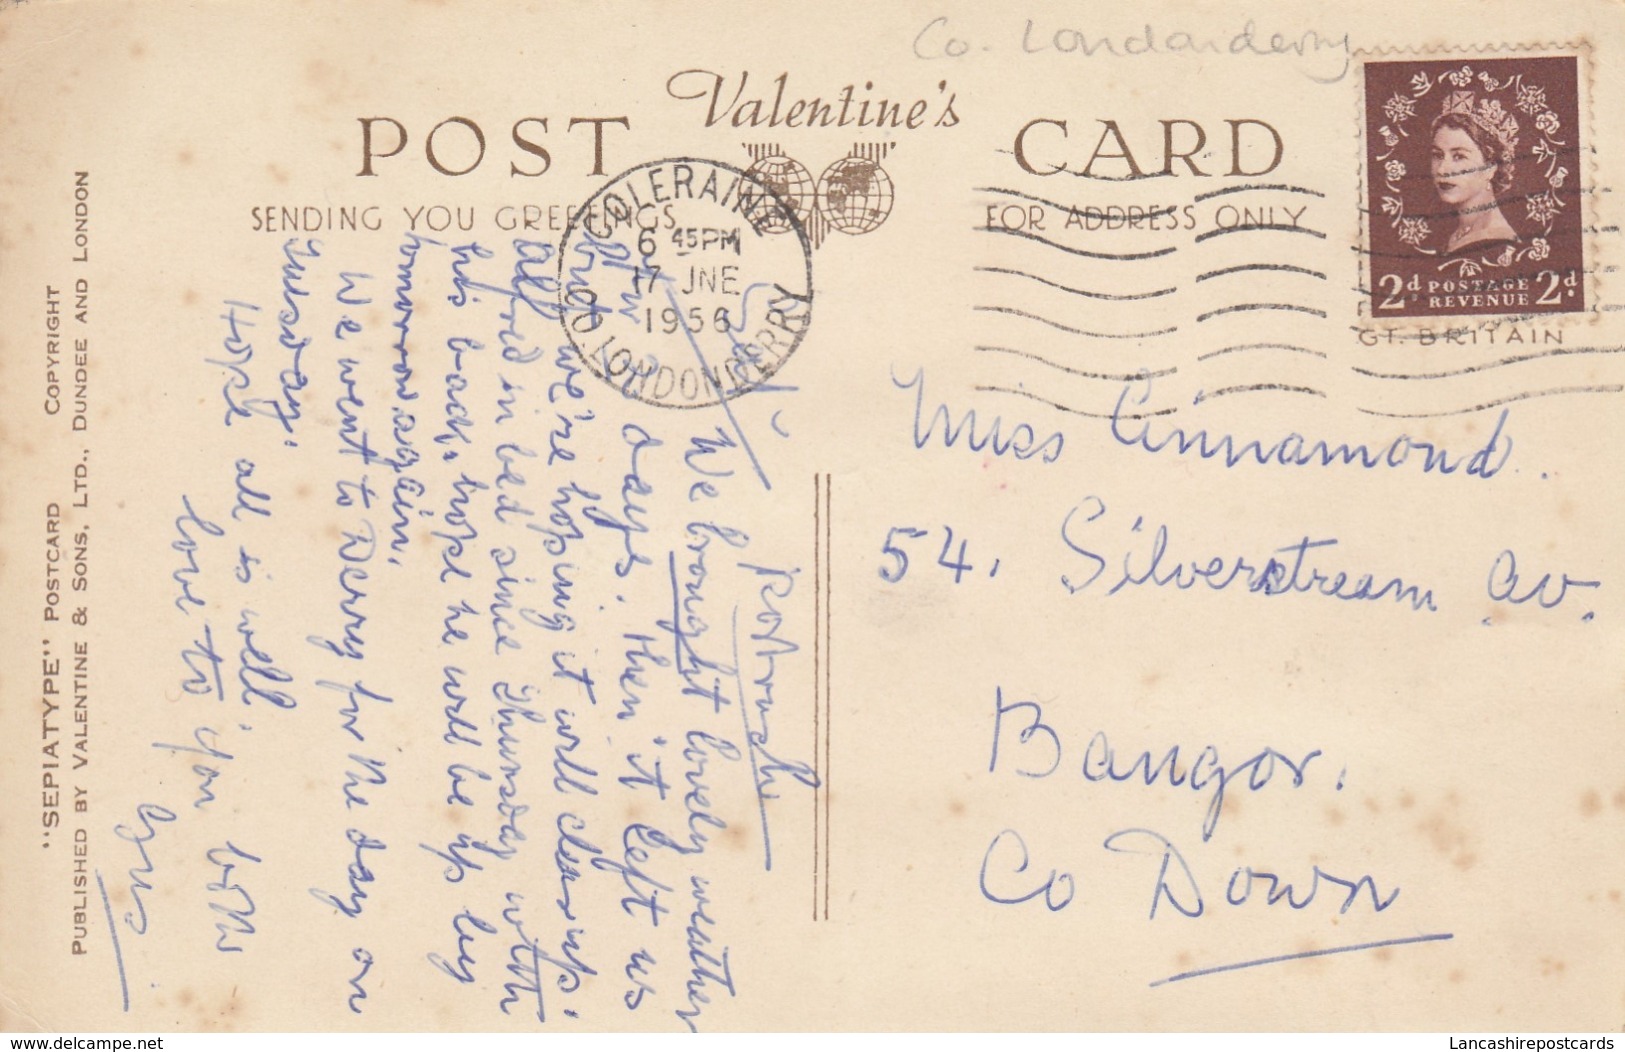 Co. Londonderry
Valentine's
POST CARD
SENDING YOU GREETINGS
FOR ADDRESS ONLY
COLERAINE
6 45PM
17 JNE
1956
CO. LONDONDERRY
2d POSTAGE REVENUE 2d
GT. BRITAIN
Miss Cinnamond.
54. Silverstream Av.
Bangor.
Co Down
Portrush
We brought lovely weather
for 2 days. Then it left us
but we're hoping it will clear up.
Alfred in bed since Thursday with
his back, hope he will be up by
tomorrow again.
We went to Derry for the day on
Tuesday.
Hope all is well.
love to you both
"SEPIATYPE" POSTCARD COPYRIGHT
PUBLISHED BY VALENTINE & SONS, LTD., DUNDEE AND LONDON
www.delcampe.net
Lancashirepostcards